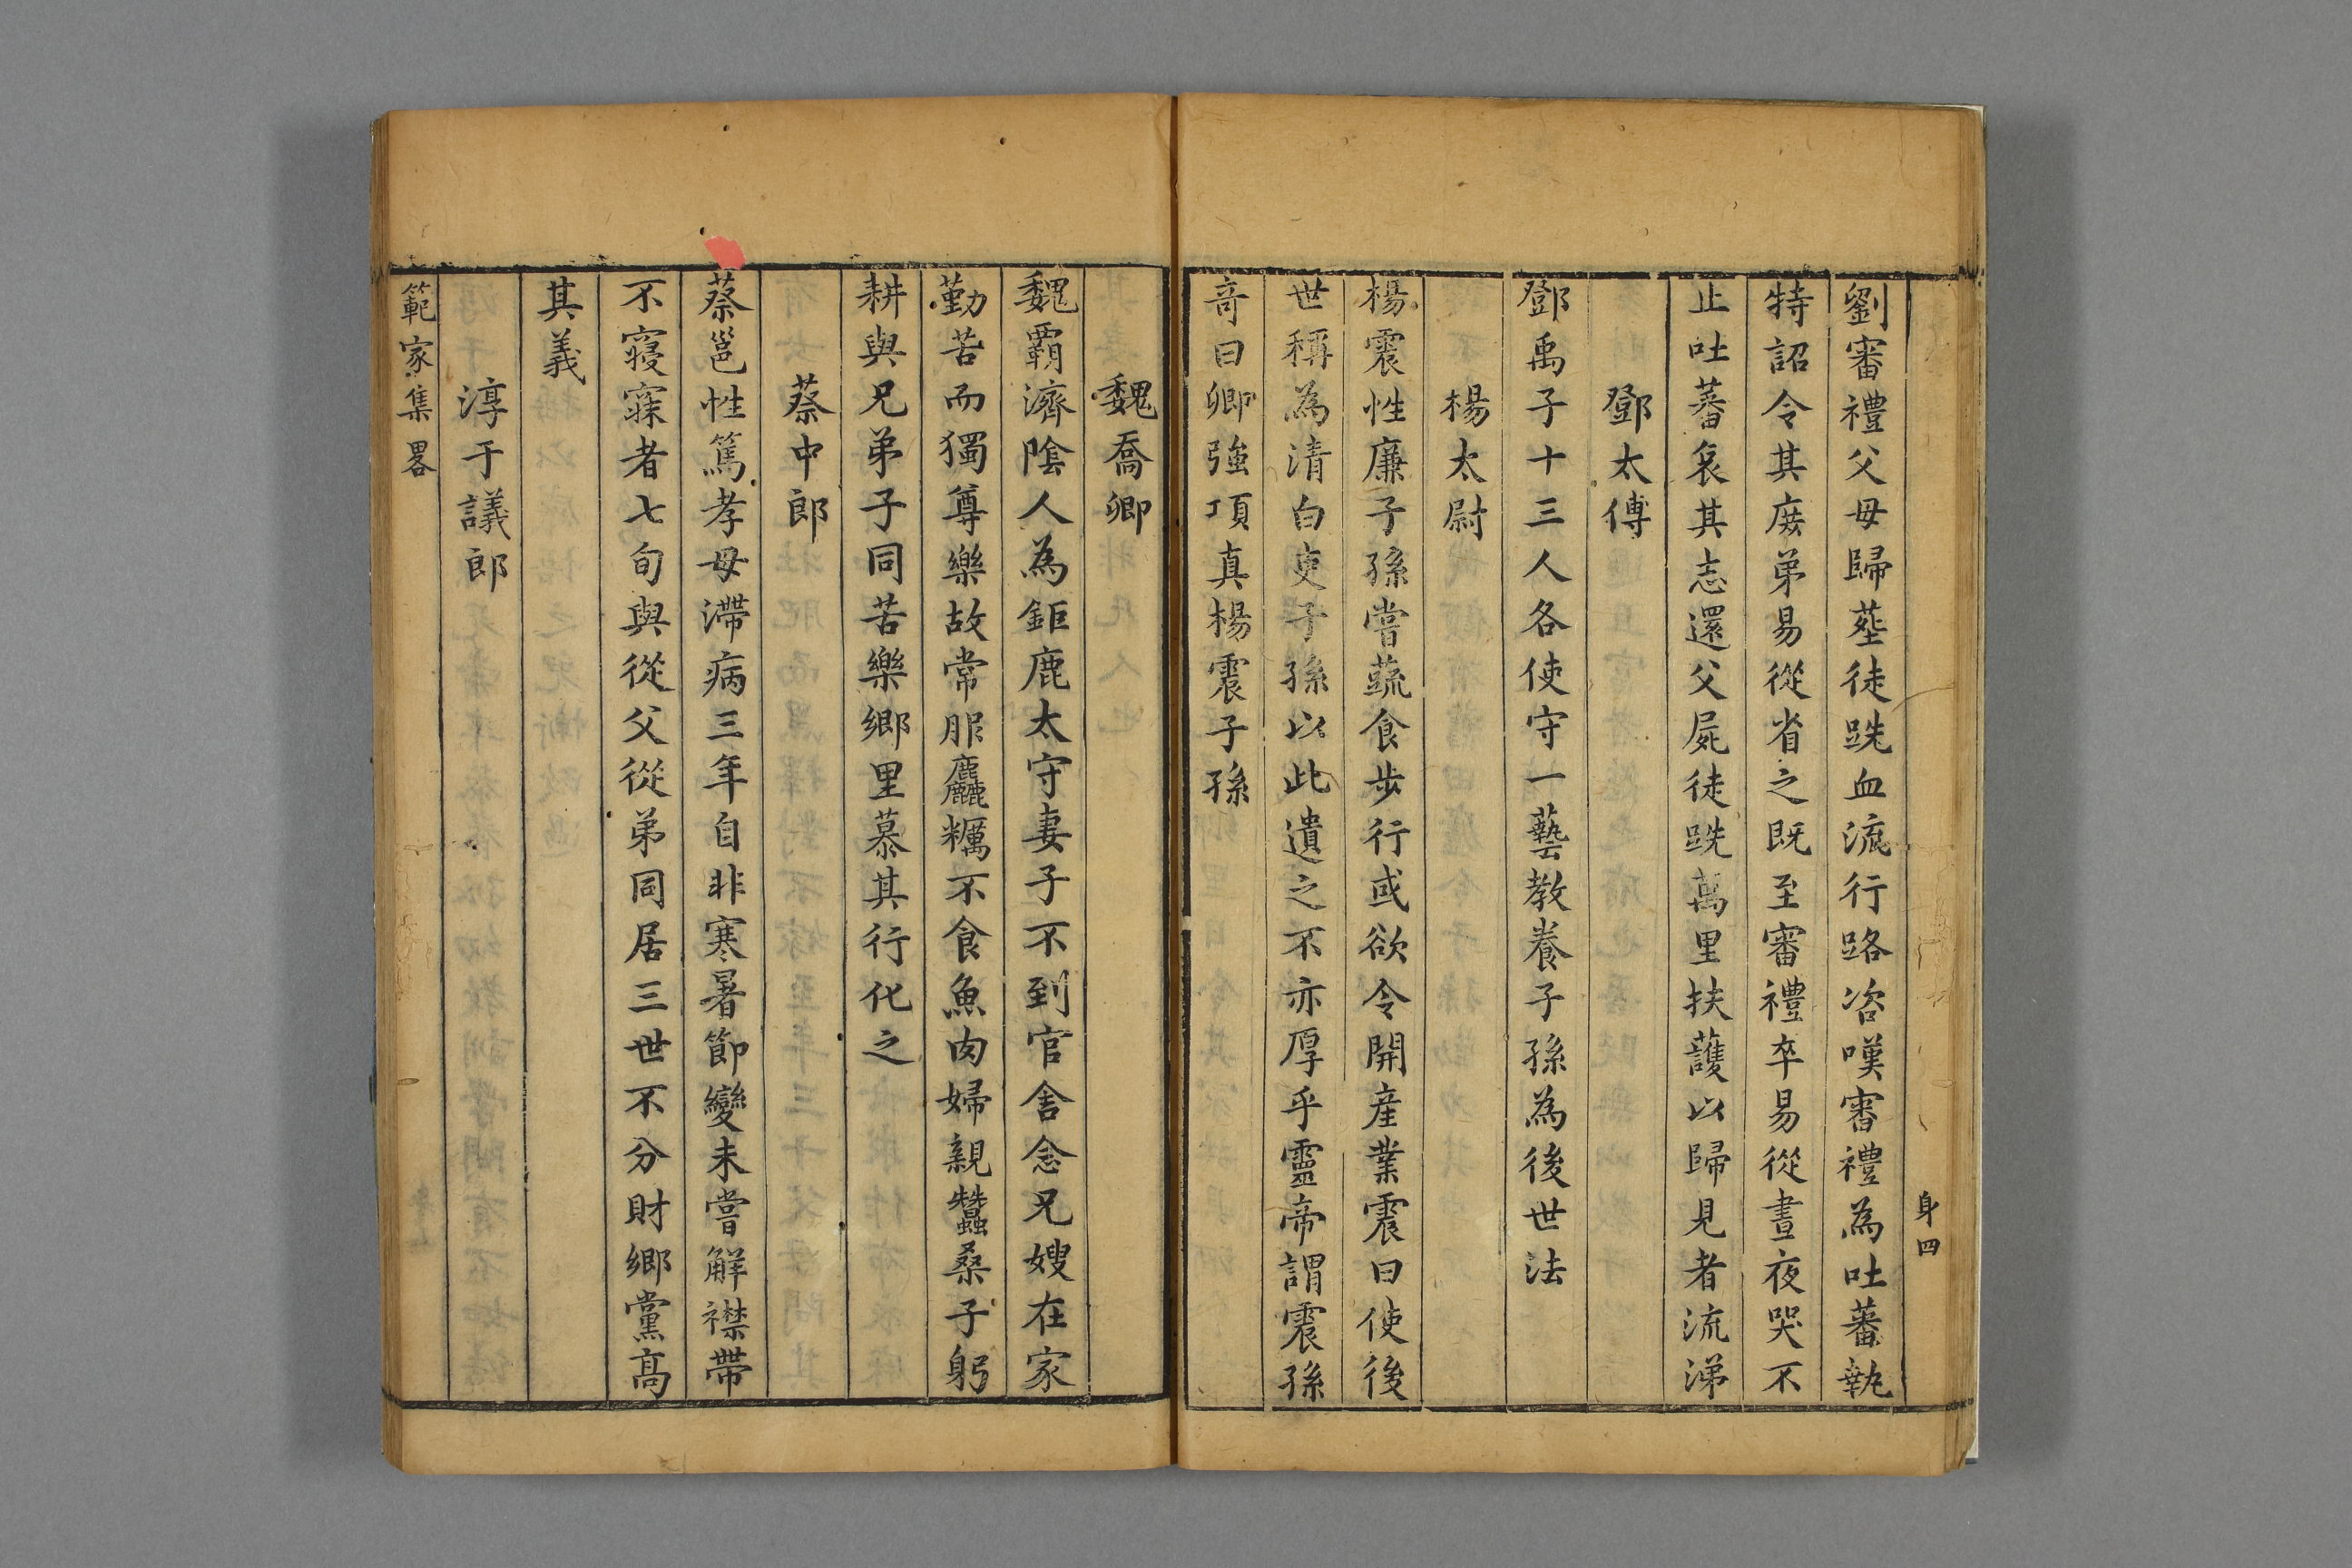 劉審禮父母歸塟徒跣血流行路咨嘆審禮為吐蕃執
特詔令其庻弟易從省之既至審禮卒易從晝夜哭不
止吐蕃哀其志還父屍徒跣萬里扶護以歸見者流涕
鄧太傅
鄧禹子十三人各使守一藝教養子孫為後世法
楊太尉
楊震性廉子孫嘗蔬食步行或欲令開産業震曰使後
世稱為清白吏子孫以此遺之不亦厚乎靈帝謂震孫
竒曰卿強項真楊震子孫
身四
魏喬卿
魏霸濟隂人為鉅鹿太守妻子不到官舍念兄嫂在家
勤苦而獨尊樂故常服麤糲不食魚肉婦親蠶桑子躬
耕與兄弟子同苦樂鄉里慕其行化之
蔡中郎
蔡邕性篤孝母滯病三年自非寒暑節變未嘗解襟帶
不寢寐者七旬與從父從弟同居三世不分財鄉黨高
其義
淳于議郎
範家集畧